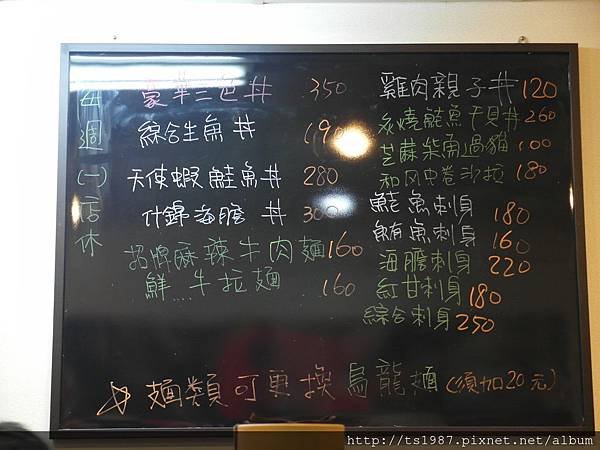 每週(一)店休
豪華三色丼 350
綜合生魚丼 190
天使蝦鮭魚丼 280
什錦海膽丼 300
招牌麻辣牛肉麵 160
鮮牛拉麵 160
雞肉親子丼 120
炙燒鮭魚干貝丼 260
芝麻柴魚過貓 100
和风中卷沙拉 180
鮭魚刺身 180
鮪魚刺身 160
海膽刺身 220
紅甘刺身 180
綜合刺身 250
☆ 麵類可更換烏龍麵(須加20元)
http://ts1987.pixnet.net/album